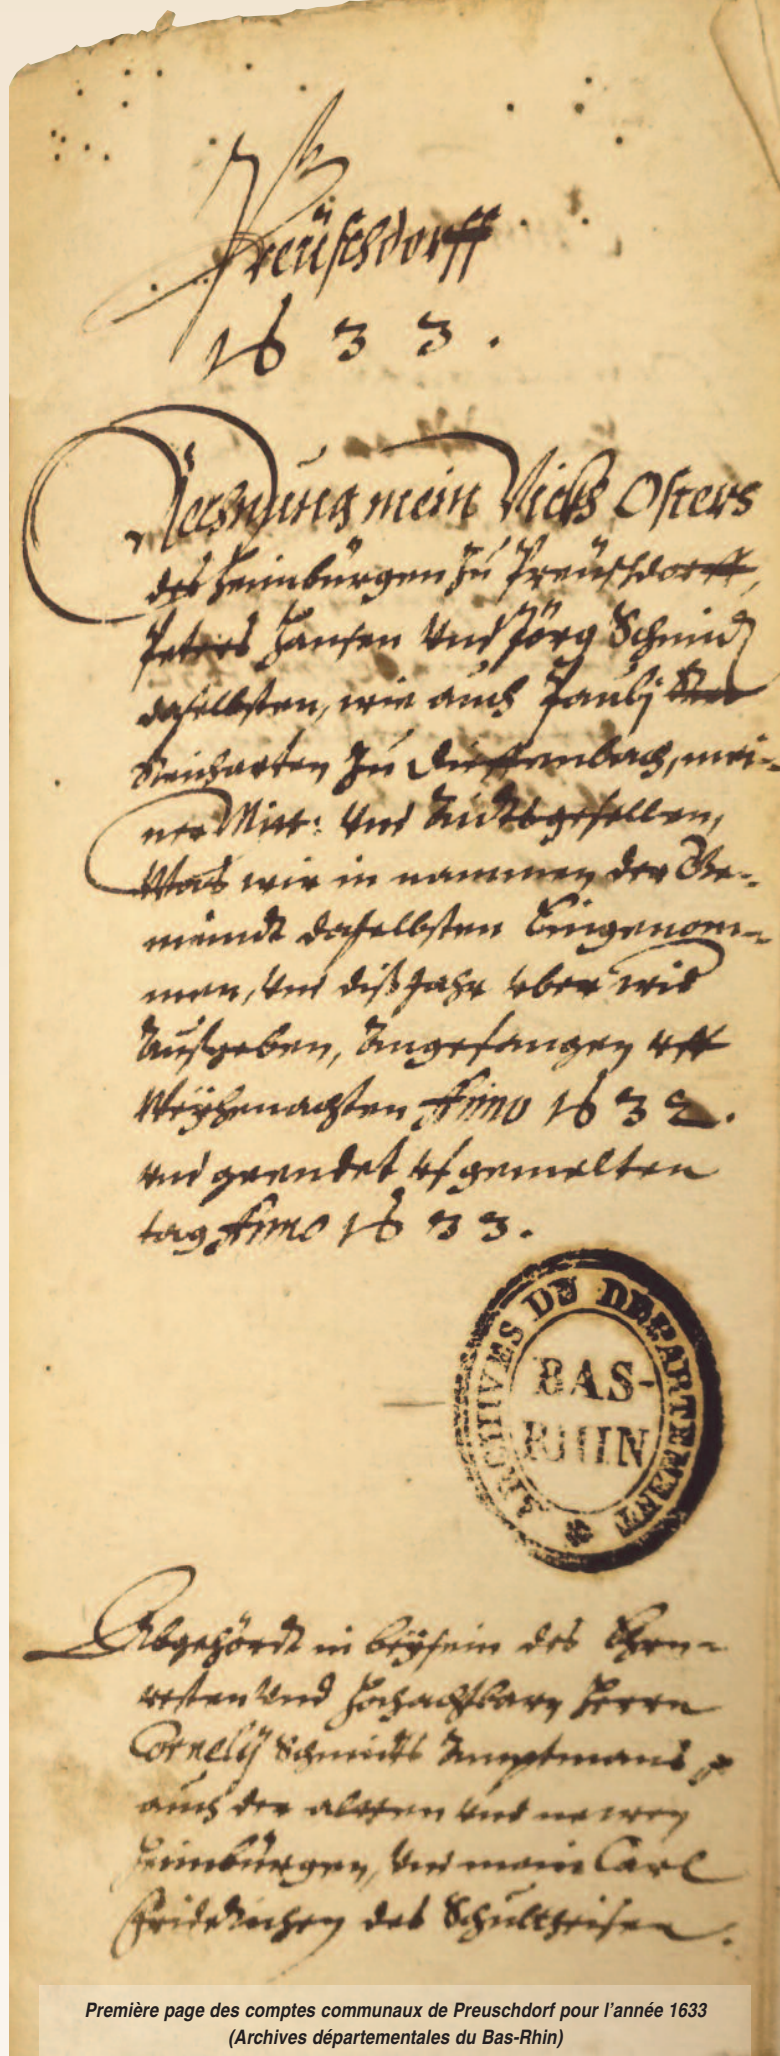 Preüschdorff
1633.
Rechnung mein Vicks Osters
des Heimbürgen zu Preüschdorff,
Peters Hansen und Jörg Schmidt
daselbsten, wie auch Paulj
Reinharten zu Dieffenbach, mei-
ner Mitt: und
Was wir in nammen der Ge-
meindt daselbsten Eingenom-
men, und diß Jahr uber wid
Außgeben, Angefangen uff
Weÿhenachten Anno 1632.
und geendet uf gemelten
tag Anno 1633.
ARCHIVES DU DÉPARTEMENT
BAS-
RHIN
Abgehördt in beÿsein des Ehrn-
vesten und Hochachtbarn Herrn
Cornelij Schmidts Amptmans
auch der altten und newen
Heimbürgen, und mein Carl
des Schultheisen.
Première page des comptes communaux de Preuschdorf pour l'année 1633
(Archives départementales du Bas-Rhin)